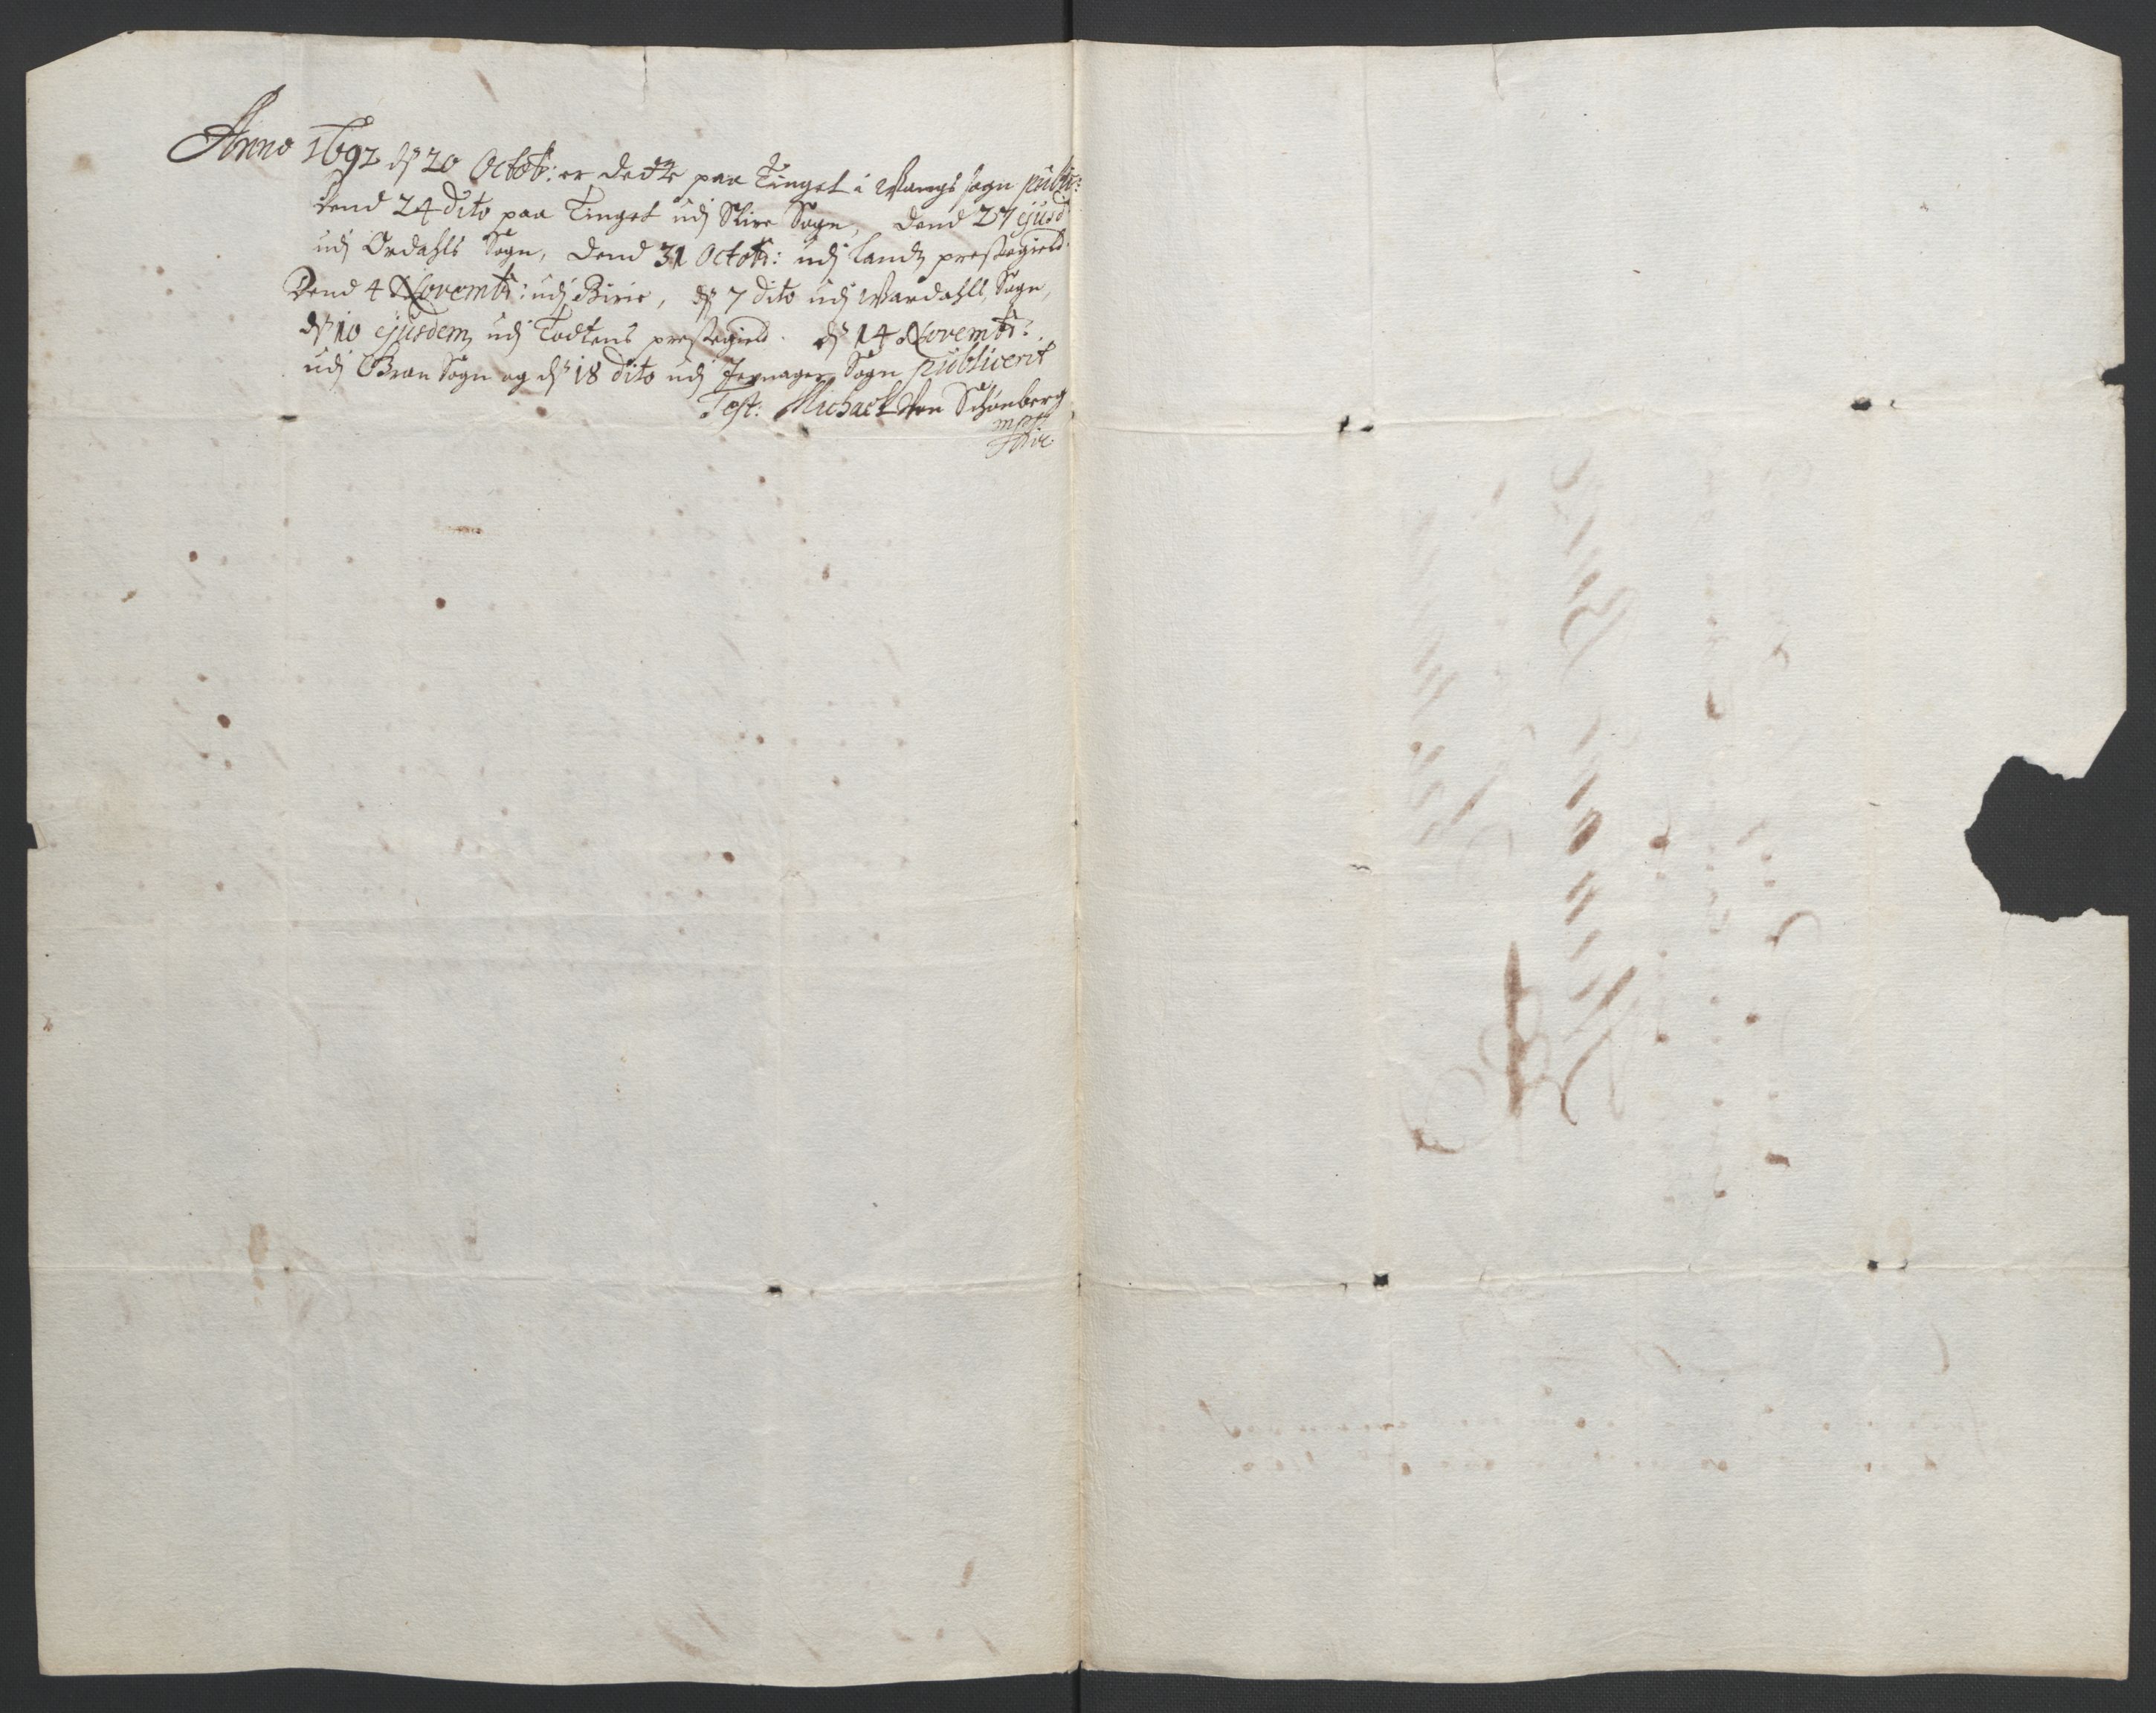 Anno 1692 dn 20 Octob: er dette paa Tinget i Wangs sogn public:
dend 24 dito paa Tinget udj Slire Sogn, dend 27 ejusd:
udj Ordahls Sogn, dend 31 Octob: udj Landz prestegield.
Dend 4 Novemb: udj Birie, dn 7 dito udj Wardahls Sogn,
dn 10 ejusdem udj Todtens prestegield. dn 14 Novemb:
udj Gran Sogn og dn 18 dito udj Jevnager Sogn publicerit
Test: Michael Von Schönberg
mpp